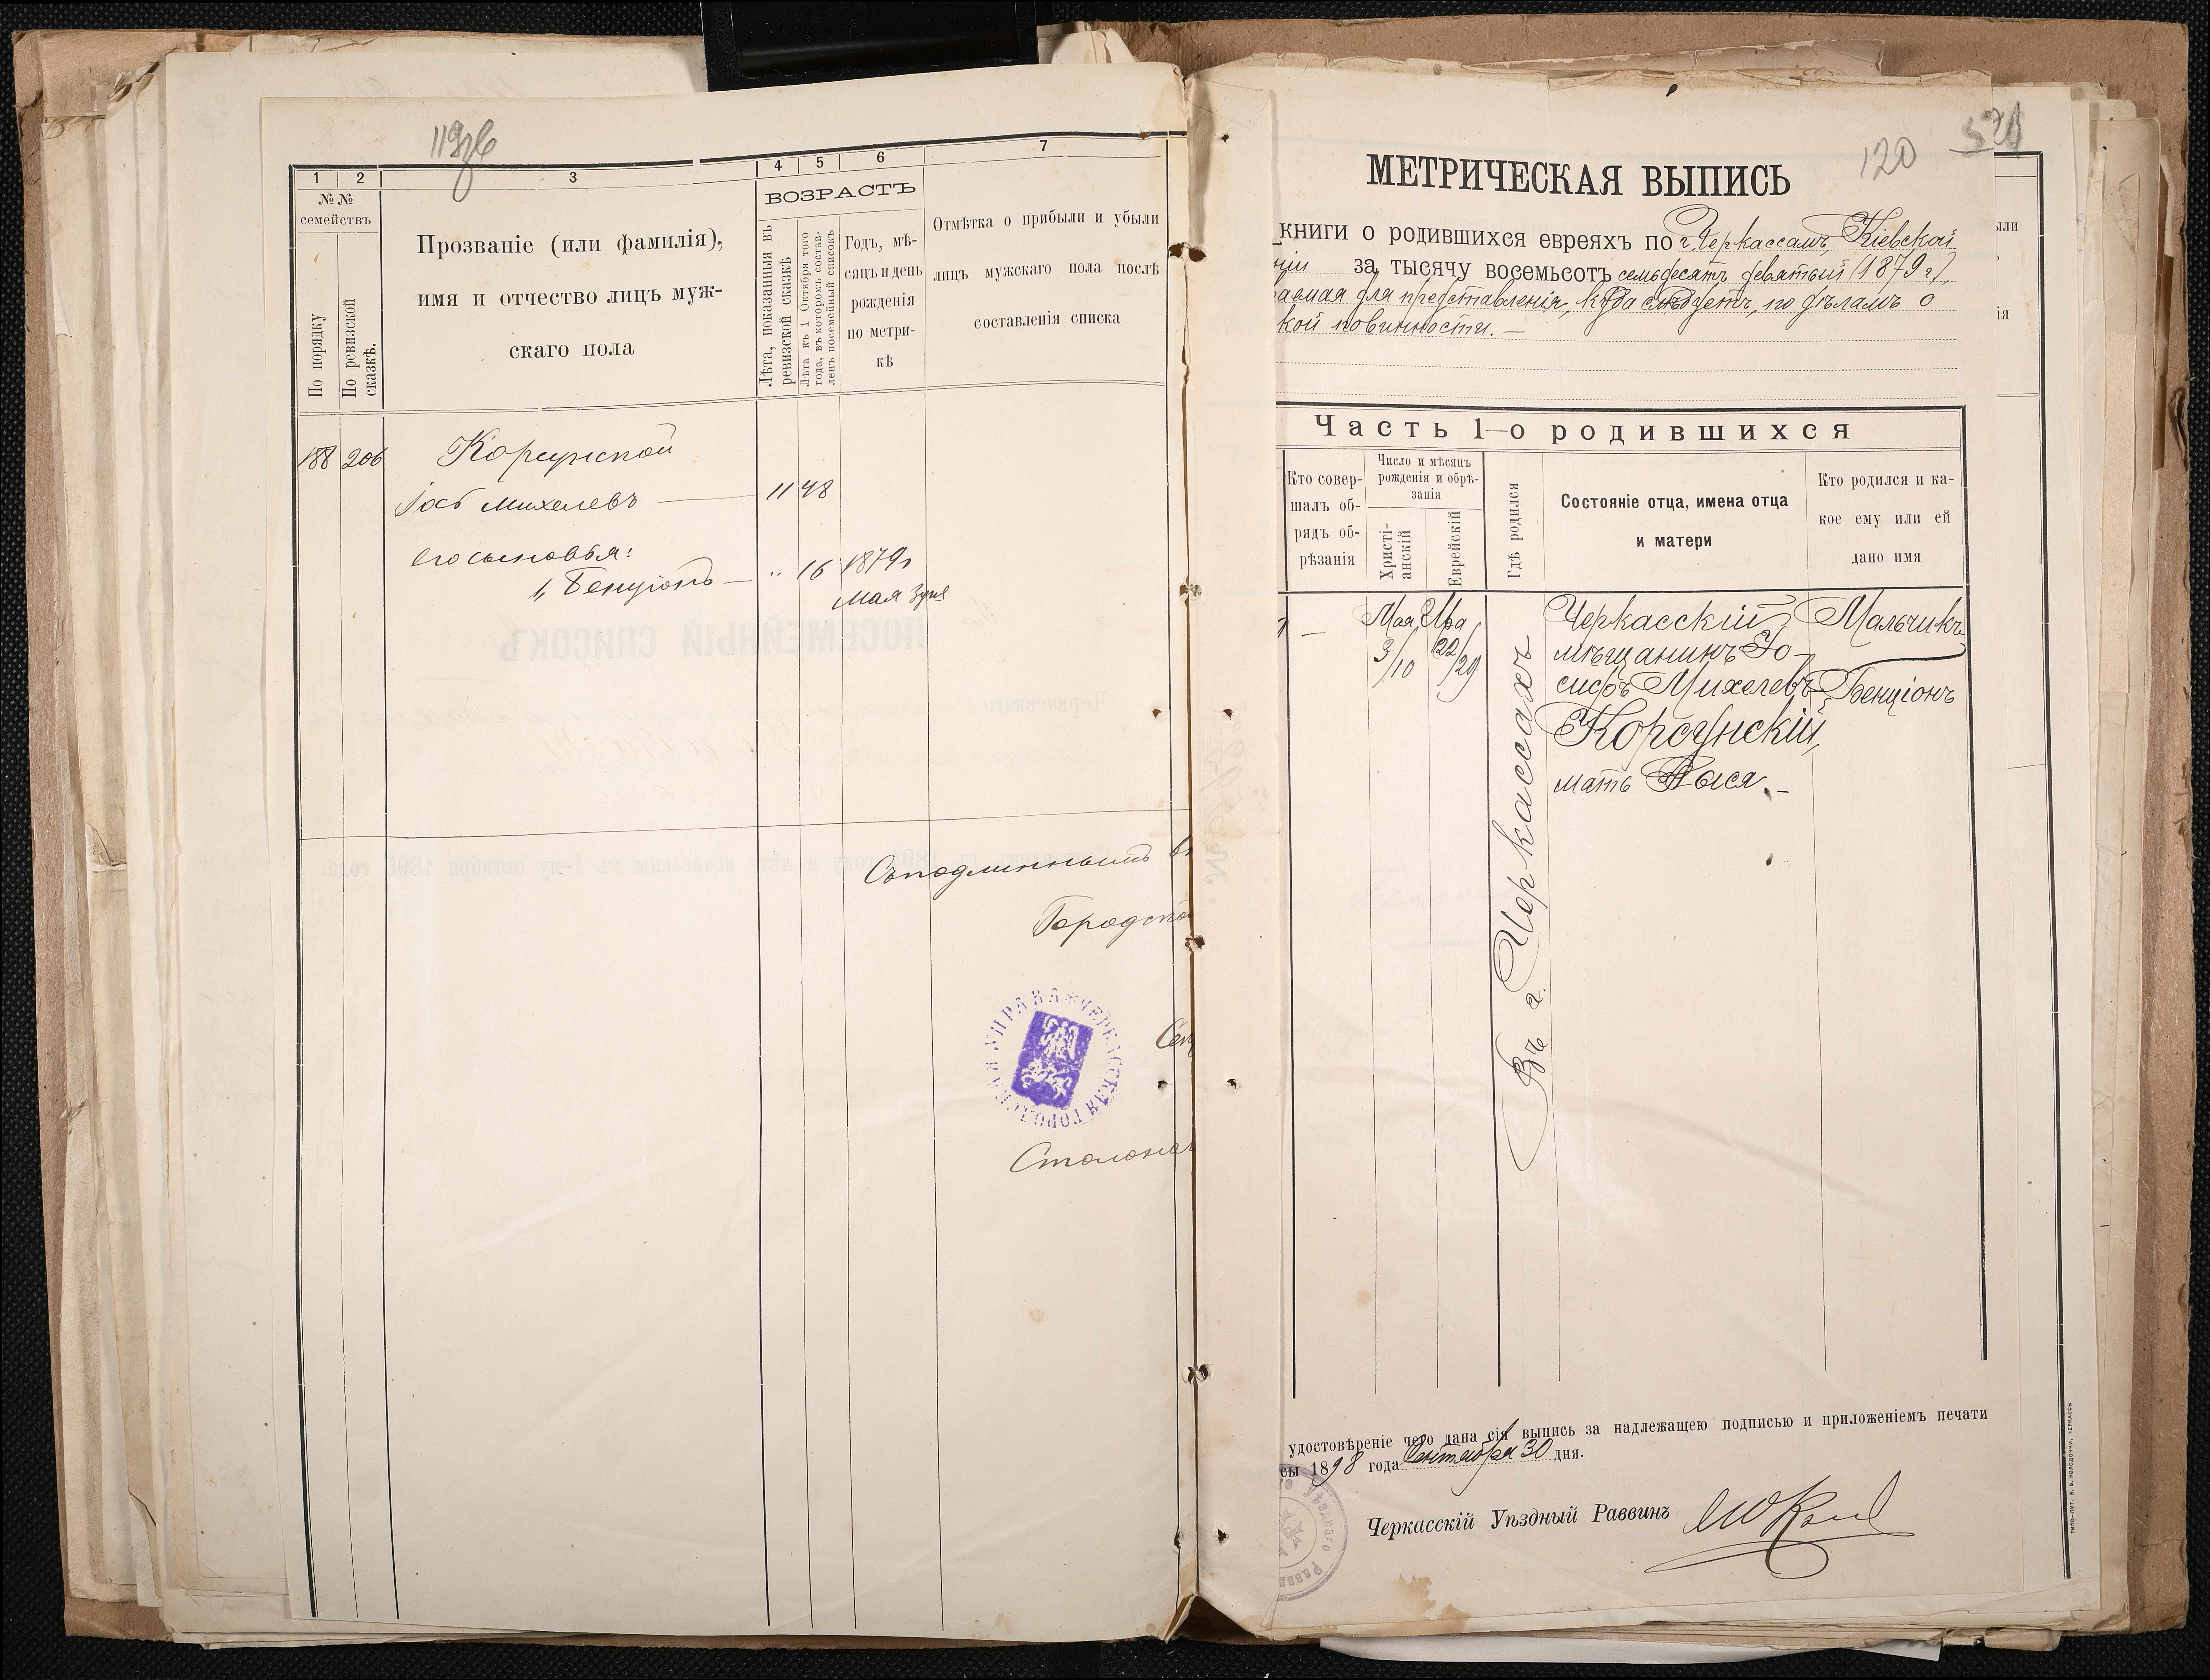 119об
1
2
3
4
5
6
7
№ №
семействъ
По порядку
По ревизской сказкѣ.
Прозваніе (или фамилія),
имя и отчество лицъ муж-
скаго пола
ВОЗРАСТЪ
Лѣта, показанныя въ
ревизской сказкѣ
Лѣта къ 1 Октября того
года, въ которомъ состав-
ленъ посемейный списокъ
Годъ, мѣ-
сяцъ и день
рожденія
по метри-
кѣ
Отмѣтка о прибыли и убыли
лицъ мужскаго пола послѣ
составленія списка
188 206 Корсунской
Іось Михелевъ — 11 48
его сыновья:
1, Бенціонъ — „ 16 1879 г
Мая 3 дня
ПОСЕМЕЙНЫЙ СПИСОКЪ
Черкасскаго
Съ подлиннымъ в
Городско
ЧЕРКАССКАЯ ГОРОДСКАЯ УПРАВА
Сек
Столонач
120
521
МЕТРИЧЕСКАЯ ВЫПИСЬ
книги о родившихся евреяхъ по г. Черкассамъ, Кіевской
ніи за тысячу восемьсотъ семьдесятъ девятый (1879 г.),
ваемая для представленія, куда слѣдуетъ, по дѣламъ о
кой повинности. —
ыли
ія
Часть 1–о родившихся
Кто совер-
шалъ об-
рядъ об-
рѣзанія
Число и мѣсяцъ
рожденія и обрѣ-
занія
Христі-
анскій
Еврейскій
Гдѣ родился
Состояніе отца, имена отца
и матери
Кто родился и ка-
кое ему или ей
дано имя
— Мая Іяра
3/10 22/29
Въ г. Черкассахъ
Черкасскій
мѣщанинъ Іо-
сифъ Михелевъ
Корсунскій,
мать Рыся. —
Мальчикъ
Бенціонъ
удостовѣреніе чего дана сія выпись за надлежащею подписью и приложеніемъ печати
сы 1898 года Сентября 30 дня.
Черкасскій Уѣздный Раввинъ
Уѣзднаго Равви
ТИПО-ЛИТ. В. Б. КОЛОДОЧКИ, ЧЕРКАССЪ